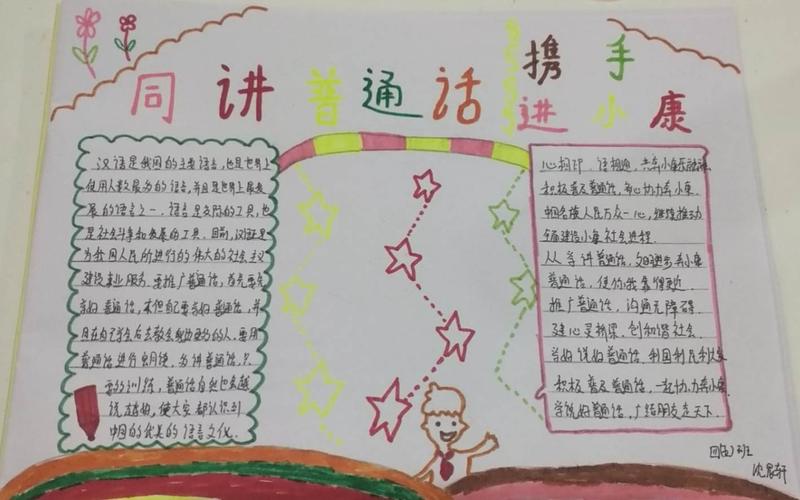 同讲普通话
携手
进小康
汉语是我国的主要语言，也是世界上
使用人数最多的语言，并且是世界上最发
展的语言之一，语言是交际的工具，也
是社会斗争和发展的工具。目前，汉语是
为我国人民所进行的伟大的社会主义
建设事业服务。要推广普通话，首先要先
学好普通话，不但自己要学好普通话，并
且在自己学会后去教会帮助更多的人，要用
普通话进行朗读，多讲普通话，只
要的训练，普通话自然也会越
说越好，使大家都认识到
中国的优美的语言文化。
心相印，语相通，共奔小康乐融融
积极普及普通话，齐心协力奔小康
中国各族人民万众一心，继续推动
全面建设小康社会进程。
从学讲普通话，文明进步奔小康
普通话，使你我靠得更近
推广普通话，沟通无障碍
建心灵桥梁，创和谐社会
学好说好普通话，利国利民利大家
积极普及普通话，一起协力奔小康
学说好普通话，广结朋友走天下。
四(2)班
沈家轩